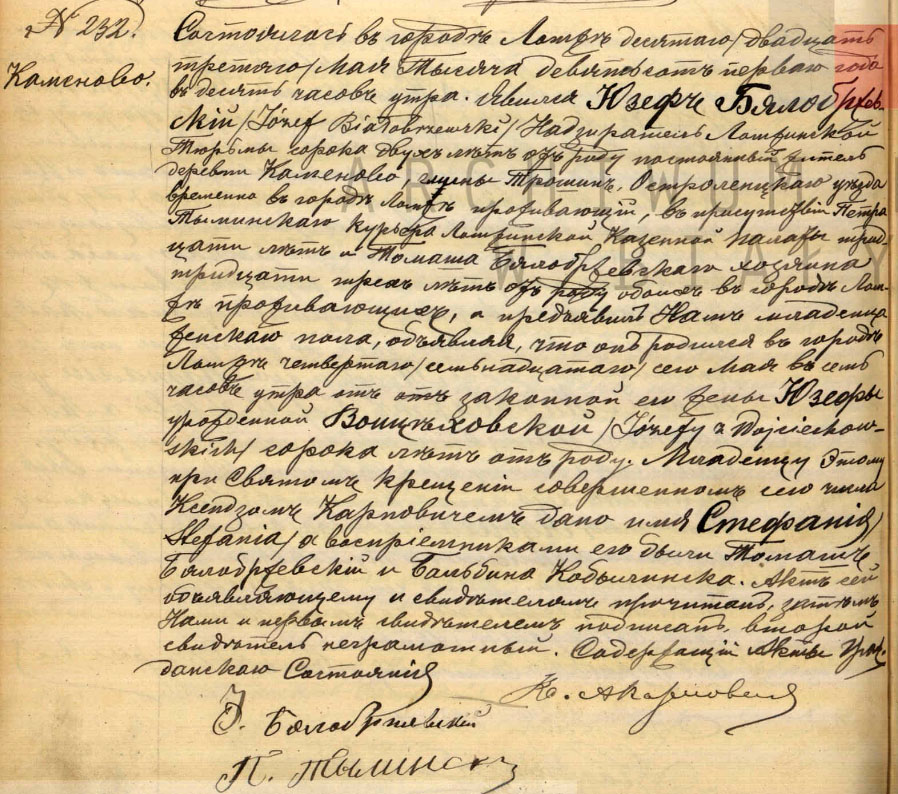 № 232.
Каменово.
Состоялось въ городѣ Ломжѣ десятаго /двадцать
третьяго/ Мая тысяча девятьсотъ перваго года
въ десять часовъ утра. Явился Юзефъ Бялобржев-
скій /Józef Białobrzewski/ Надзиратель Ломжинской
Тюрьмы сорока двухъ лѣтъ отъ роду постоянный житель
деревни Каменово гмины Трошинъ, Остроленцкаго уѣзда
временно въ городѣ Ломжѣ проживающій, въ присутствіи Петра
Тыминскаго курьера Ломжинской Казенной Палаты трид-
цати лѣтъ и Томаша Бялобржевскаго хозяина
тридцати трехъ лѣтъ отъ роду обоихъ въ городѣ Лом-
жѣ проживающихъ, и предъявилъ Намъ младенца
женскаго пола, объявляя, что онъ родился въ городѣ
Ломжѣ четвертаго /семьнадцатаго/ сего Мая въ семь
часовъ утра отъ отъ законной его жены Юзефы
урожденной Войцѣховской /Józefy z Wojciechow-
skich/ сорока лѣтъ отъ роду. Младенцу этому
при Святомъ Крещеніи совершенномъ сего числа
Ксендзомъ Карповичемъ дано имя Стефанія /
Stefania/ а воспріемниками его были Томашъ
Бялобржевскій и Бальбина Кобылинска. Актъ сей
объявляющему и свидѣтелямъ прочитанъ, затѣмъ
Нами и первымъ свидѣтелемъ подписанъ второй
свидѣтель неграмотный. Содержащій Акты Граж-
данскаго Состоянія
К. А Карпович
Ю. Бялобржевскій
П. Тыминск
ARCHIWUM